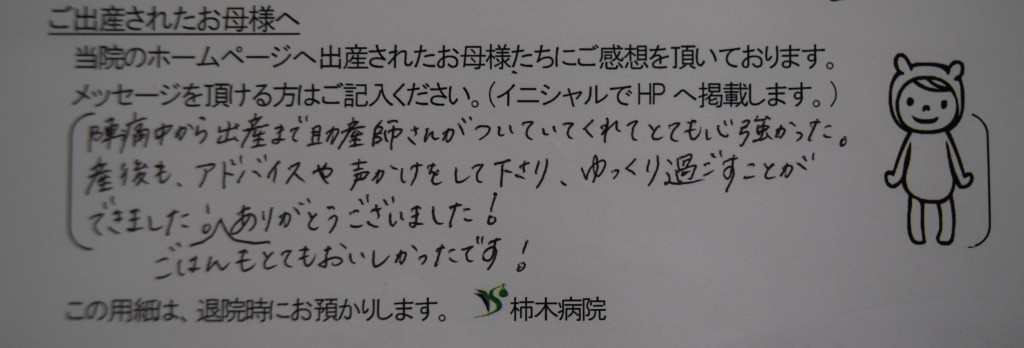 ご出産されたお母様へ
当院のホームページへ出産されたお母様たちにご感想を頂いております。
メッセージを頂ける方はご記入ください。(イニシャルでHPへ掲載します。)
陣痛中から出産まで助産師さんがついていてくれてとても心強かった。
産後も、アドバイスや声かけをして下さり、ゆっくり過ごすことが
できました。ありがとうございました!
ごはんもとてもおいしかったです!
この用紙は、退院時にお預かりします。 柿木病院